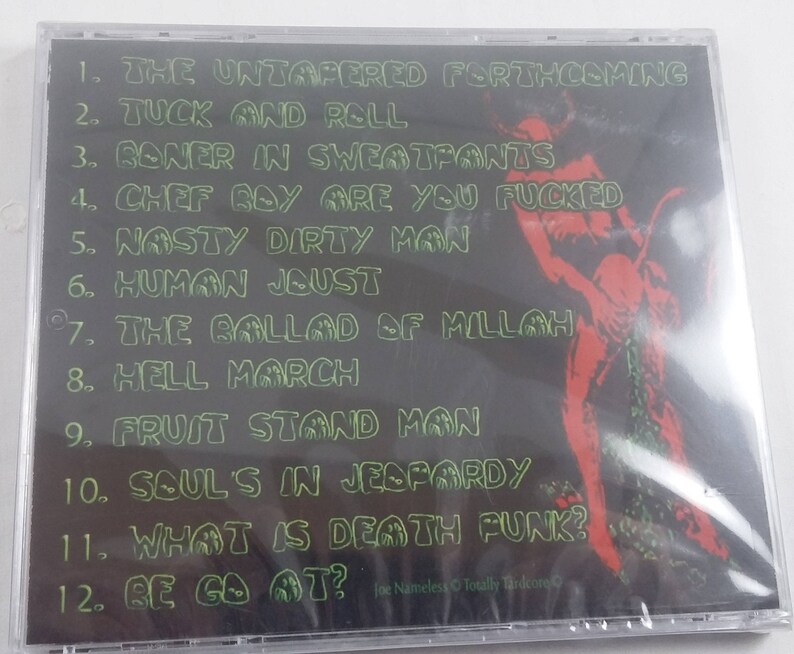 1. THE UNTAPERED FORTHCOMING
2. TUCK AND ROLL
3. BONER IN SWEATPANTS
4. CHEF BOY ARE YOU FUCKED
5. NASTY DIRTY MAN
6. HUMAN JOUST
7. THE BALLAD OF MILLAH
8. HELL MARCH
9. FRUIT STAND MAN
10. SOUL'S IN JEOPARDY
11. WHAT IS DEATH PUNK?
12. BE GO AT?
Joe Nameless © Totally Tardcore ©